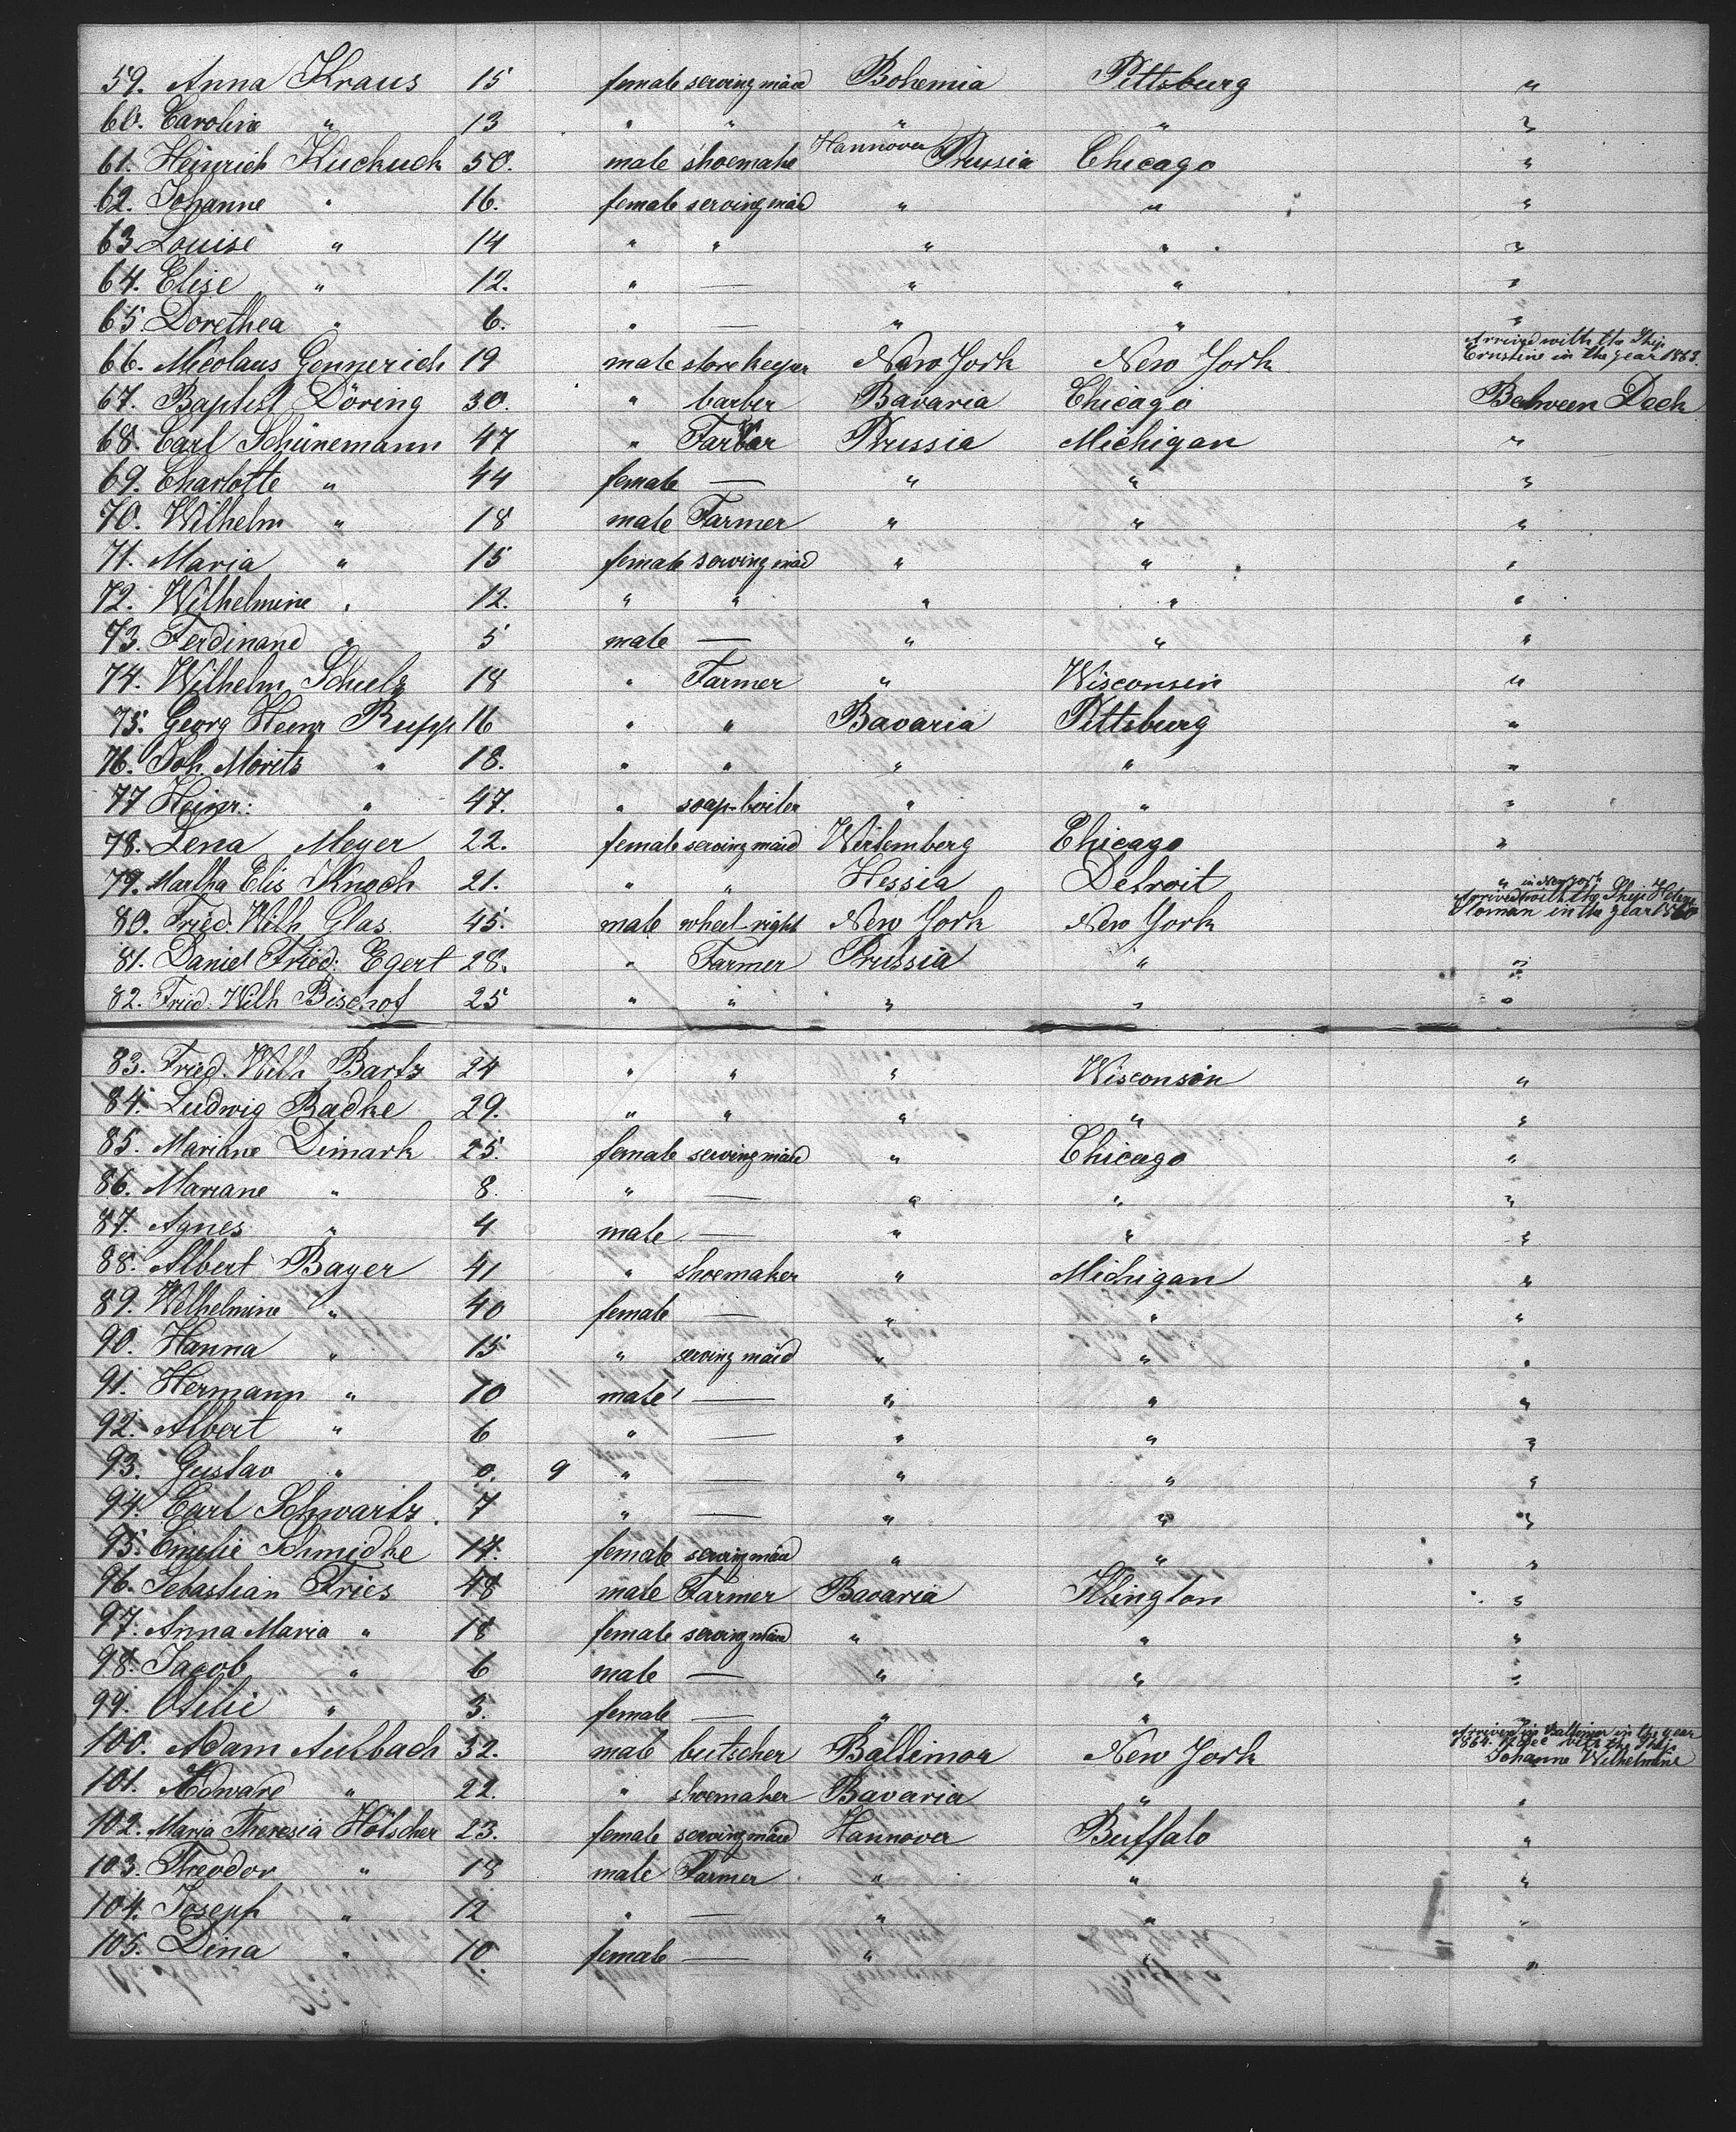 59. Anna Kraus 15 female serving maid Bohemia Pittsburg "
60. Caroline " 13 " " " " "
61. Heinrich Kuckuck 50. male shoemake Hannover Prusia Chicago "
62. Johanne " 16. female serving maid " " "
63 Louise " 14 " " " " "
64. Elise " 12. " — " " "
65. Dorethea " 6. " — " " "
66. Nicolaus Gennerich 19 male store keeper New York New York Arrived with the Ship Ernstine in the year 1863.
67. Baptist Döring 30. " barber Bavaria Chicago Between Deck
68. Carl Schünemann 47 " Prussia Michigan "
69. Charlotte " 44 female — " " "
70. Wilhelm " 18 male Farmer " " "
71. Maria " 15 female serving maid " " "
72. Wilhelmine " 12. " " " " "
73. Ferdinand " 5 male — " " "
74. Wilhelm Schulz 18 " Farmer " Wisconsin "
75. Georg Heinr Rupp 16 " " Bavaria Pittsburg "
76. Joh. Moritz " 18. " " " " "
77 Heinr: " 47. " soap-boiler " " "
78. Lena Meyer 22. female serving maid Wirtemberg Chicago "
79. Martha Elis Knoch 21. " " Hessia Detroit "
80. Fried. Wilh. Glas 45. male wheel-right New York New York in New York Arrived with the Ship in the year
81. Daniel Fried: Egert 28. " Farmer Prussia " "
82. Fried. Wilh Bischof 25 " " " " "
83. Fried. Wilh Bartz 24 " " " Wisconsin "
84. Ludwig Badke 29. " " " " "
85. Mariane Dimark 25. female serving maid " Chicago "
86. Mariane " 8. " — " " "
87. Agnes " 4 male — " " "
88. Albert Bayer 41 " shoemaker " Michigan "
89. Welhelmine " 40 female — " " "
90. Hanna " 15 " serving maid " " "
91. Hermann " 10 male — " " "
92. Albert " 6 " — " " "
93. Gustav " 0. 9 " — " " "
94. Carl Schwartz. 7 " — " " "
95. Emilie Schmidke 17. female serving maid " " "
96. Sebastian Fries 48 male Farmer Bavaria Illington "
97. Anna Maria " 18 female serving maid " " "
98. Jacob " 6 male — " " "
99. Otilie " 3. female — " " "
100. Adam Aulbach 32. male butscher Baltimor New York Arrived in Baltimor in the year 1864. with the Ship Johanne Wilhelmine
101. Edward " 22. " shoemaker Bavaria " "
102. Maria Theresia Hölscher 23. female serving maid Hannover Buffalo "
103. Theodor " 18 male Farmer " " "
104. Joseph " 12 " — " " "
105. Dina " 10. female — " " "